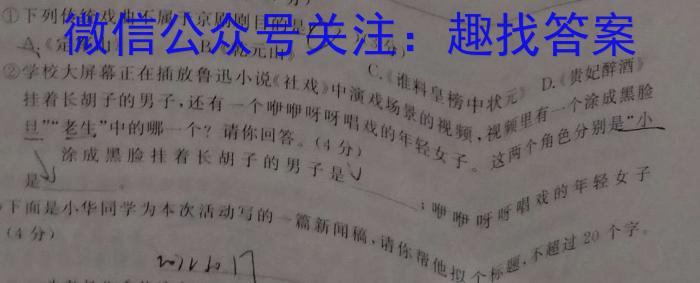 ①下列传统戏曲不属于京剧剧目的是
微信公众号关注：趣找答案
C.《谁料皇榜中状元》 D.《贵妃醉酒》
②学校大屏幕正在播放鲁迅小说《社戏》中演戏场景的视频，视频里有一个涂成黑脸
挂着长胡子的男子，还有一个咿咿呀呀唱戏的年轻女子。这两个角色分别是“小
旦”“老生”中的哪一个？请你回答。(4分)
涂成黑脸挂着长胡子的男子是；咿咿呀呀唱戏的年轻女子
是。
下面是小华同学为本次活动写的一篇新闻稿，请你帮他拟个标题，不超过20个字。
(4分)